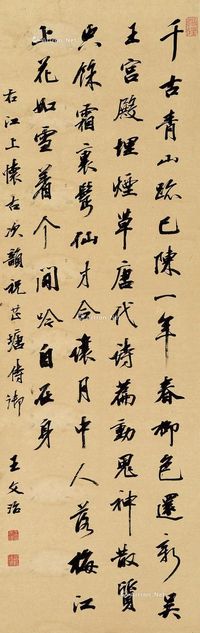 千古青山跡已陳一年春柳色還新吳
王宮殿埋煙草唐代詩篇動鬼神散質
與餘霜裏髩仙才合讓月中人落梅江
上花如雪着个閒吟自在身
右江上懷古次韻祝芷塘侍御
王文治